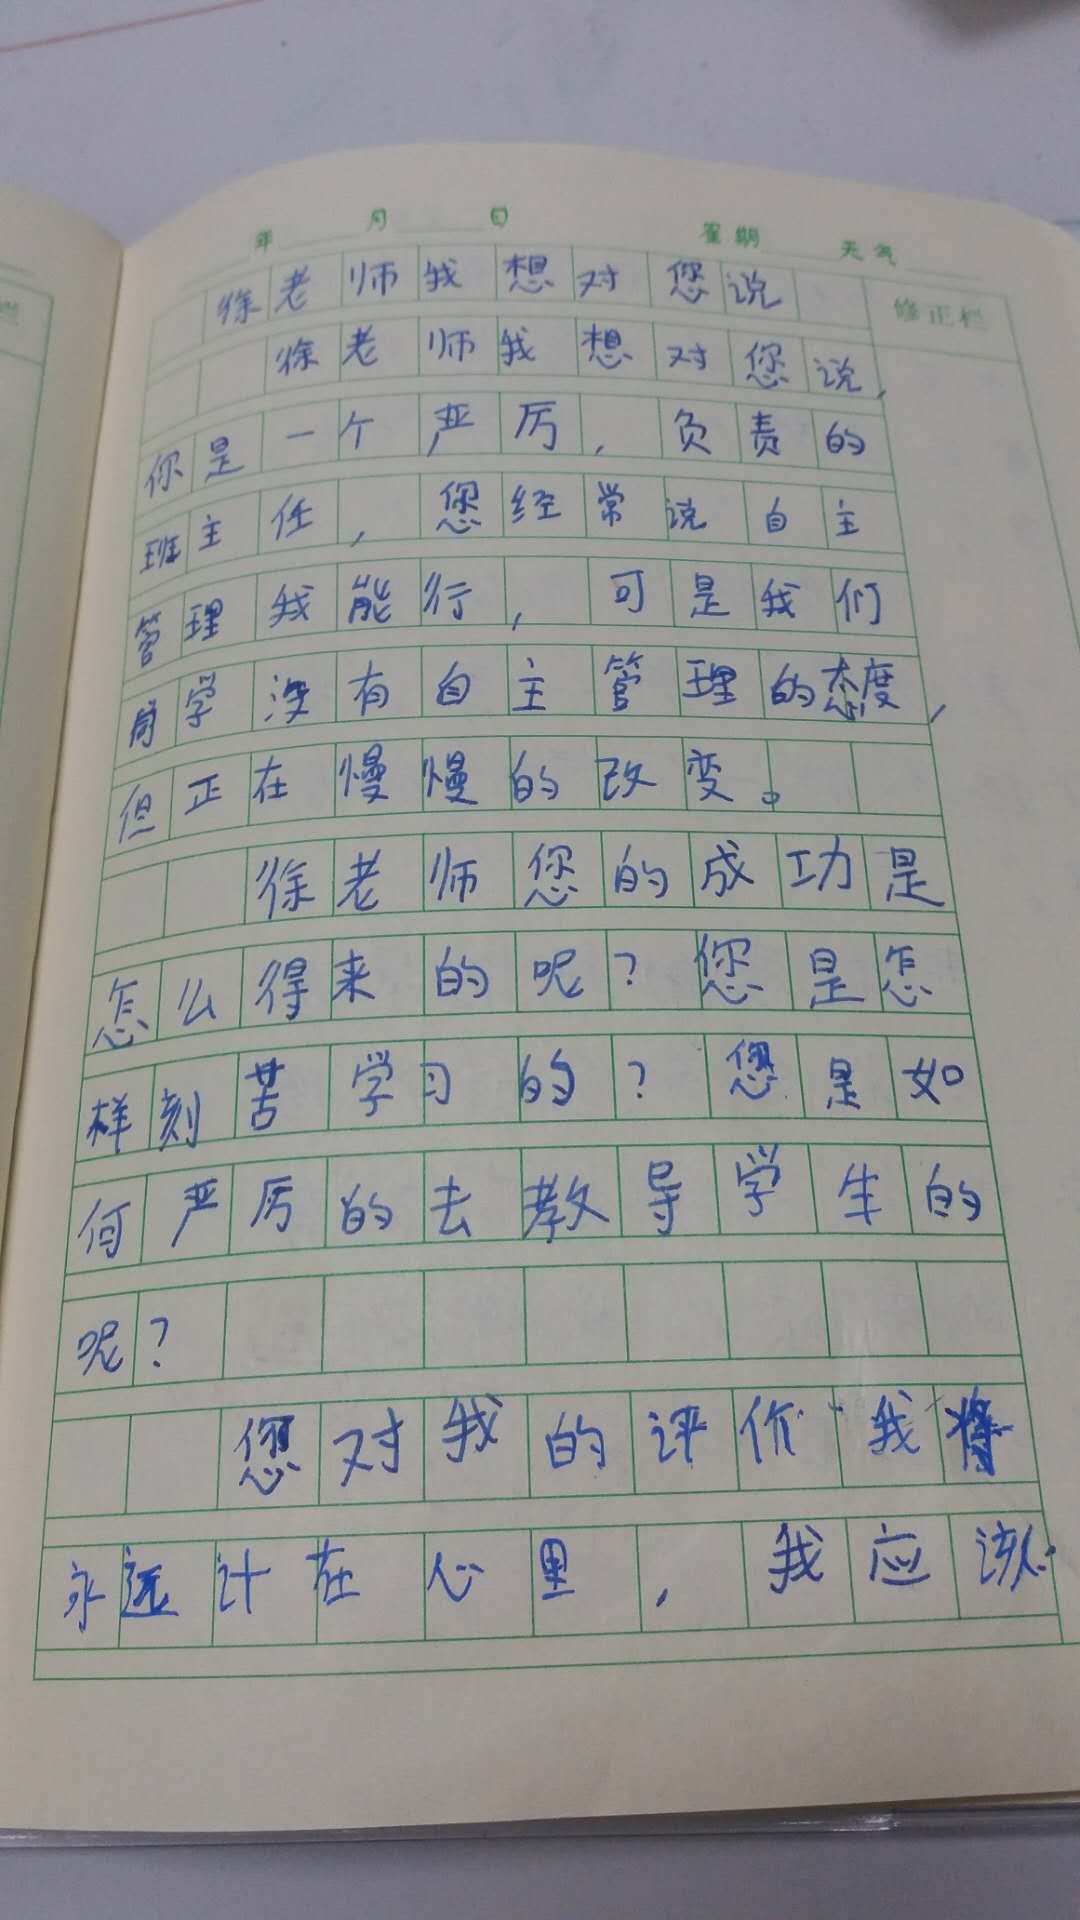 年 月 日 星期 天气
修正栏
徐老师我想对您说
徐老师我想对您说,
你是一个严厉,负责的
班主任,您经常说自主
管理我能行,可是我们
同学没有自主管理的态度,
但正在慢慢的改变。
徐老师您的成功是
怎么得来的呢?您是怎
样刻苦学习的?您是如
何严厉的去教导学生的
呢?
您对我的评价我将
永远计在心里,我应该